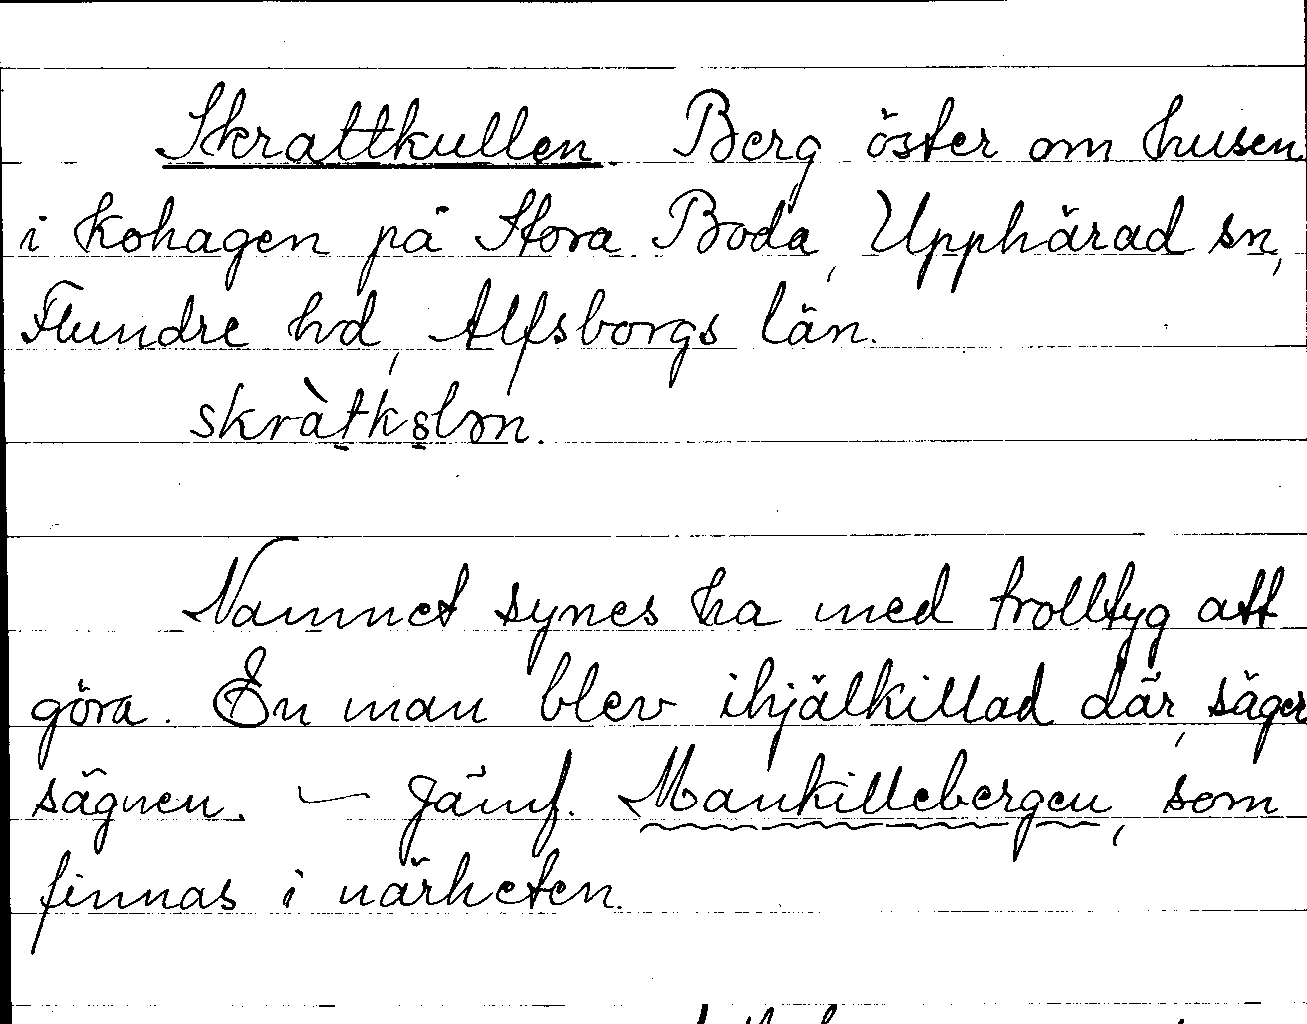 Skrattkullen. Berg öster om husen
i kohagen på Stora Boda, Upphärad sn,
Flundre hd, Älfsborgs län.
Namnet synes ha med trolltyg att
göra. En man blev ihjälkillad där, säger
sägnen. — Jämf. Mankillebergen, som
finnas i närheten.